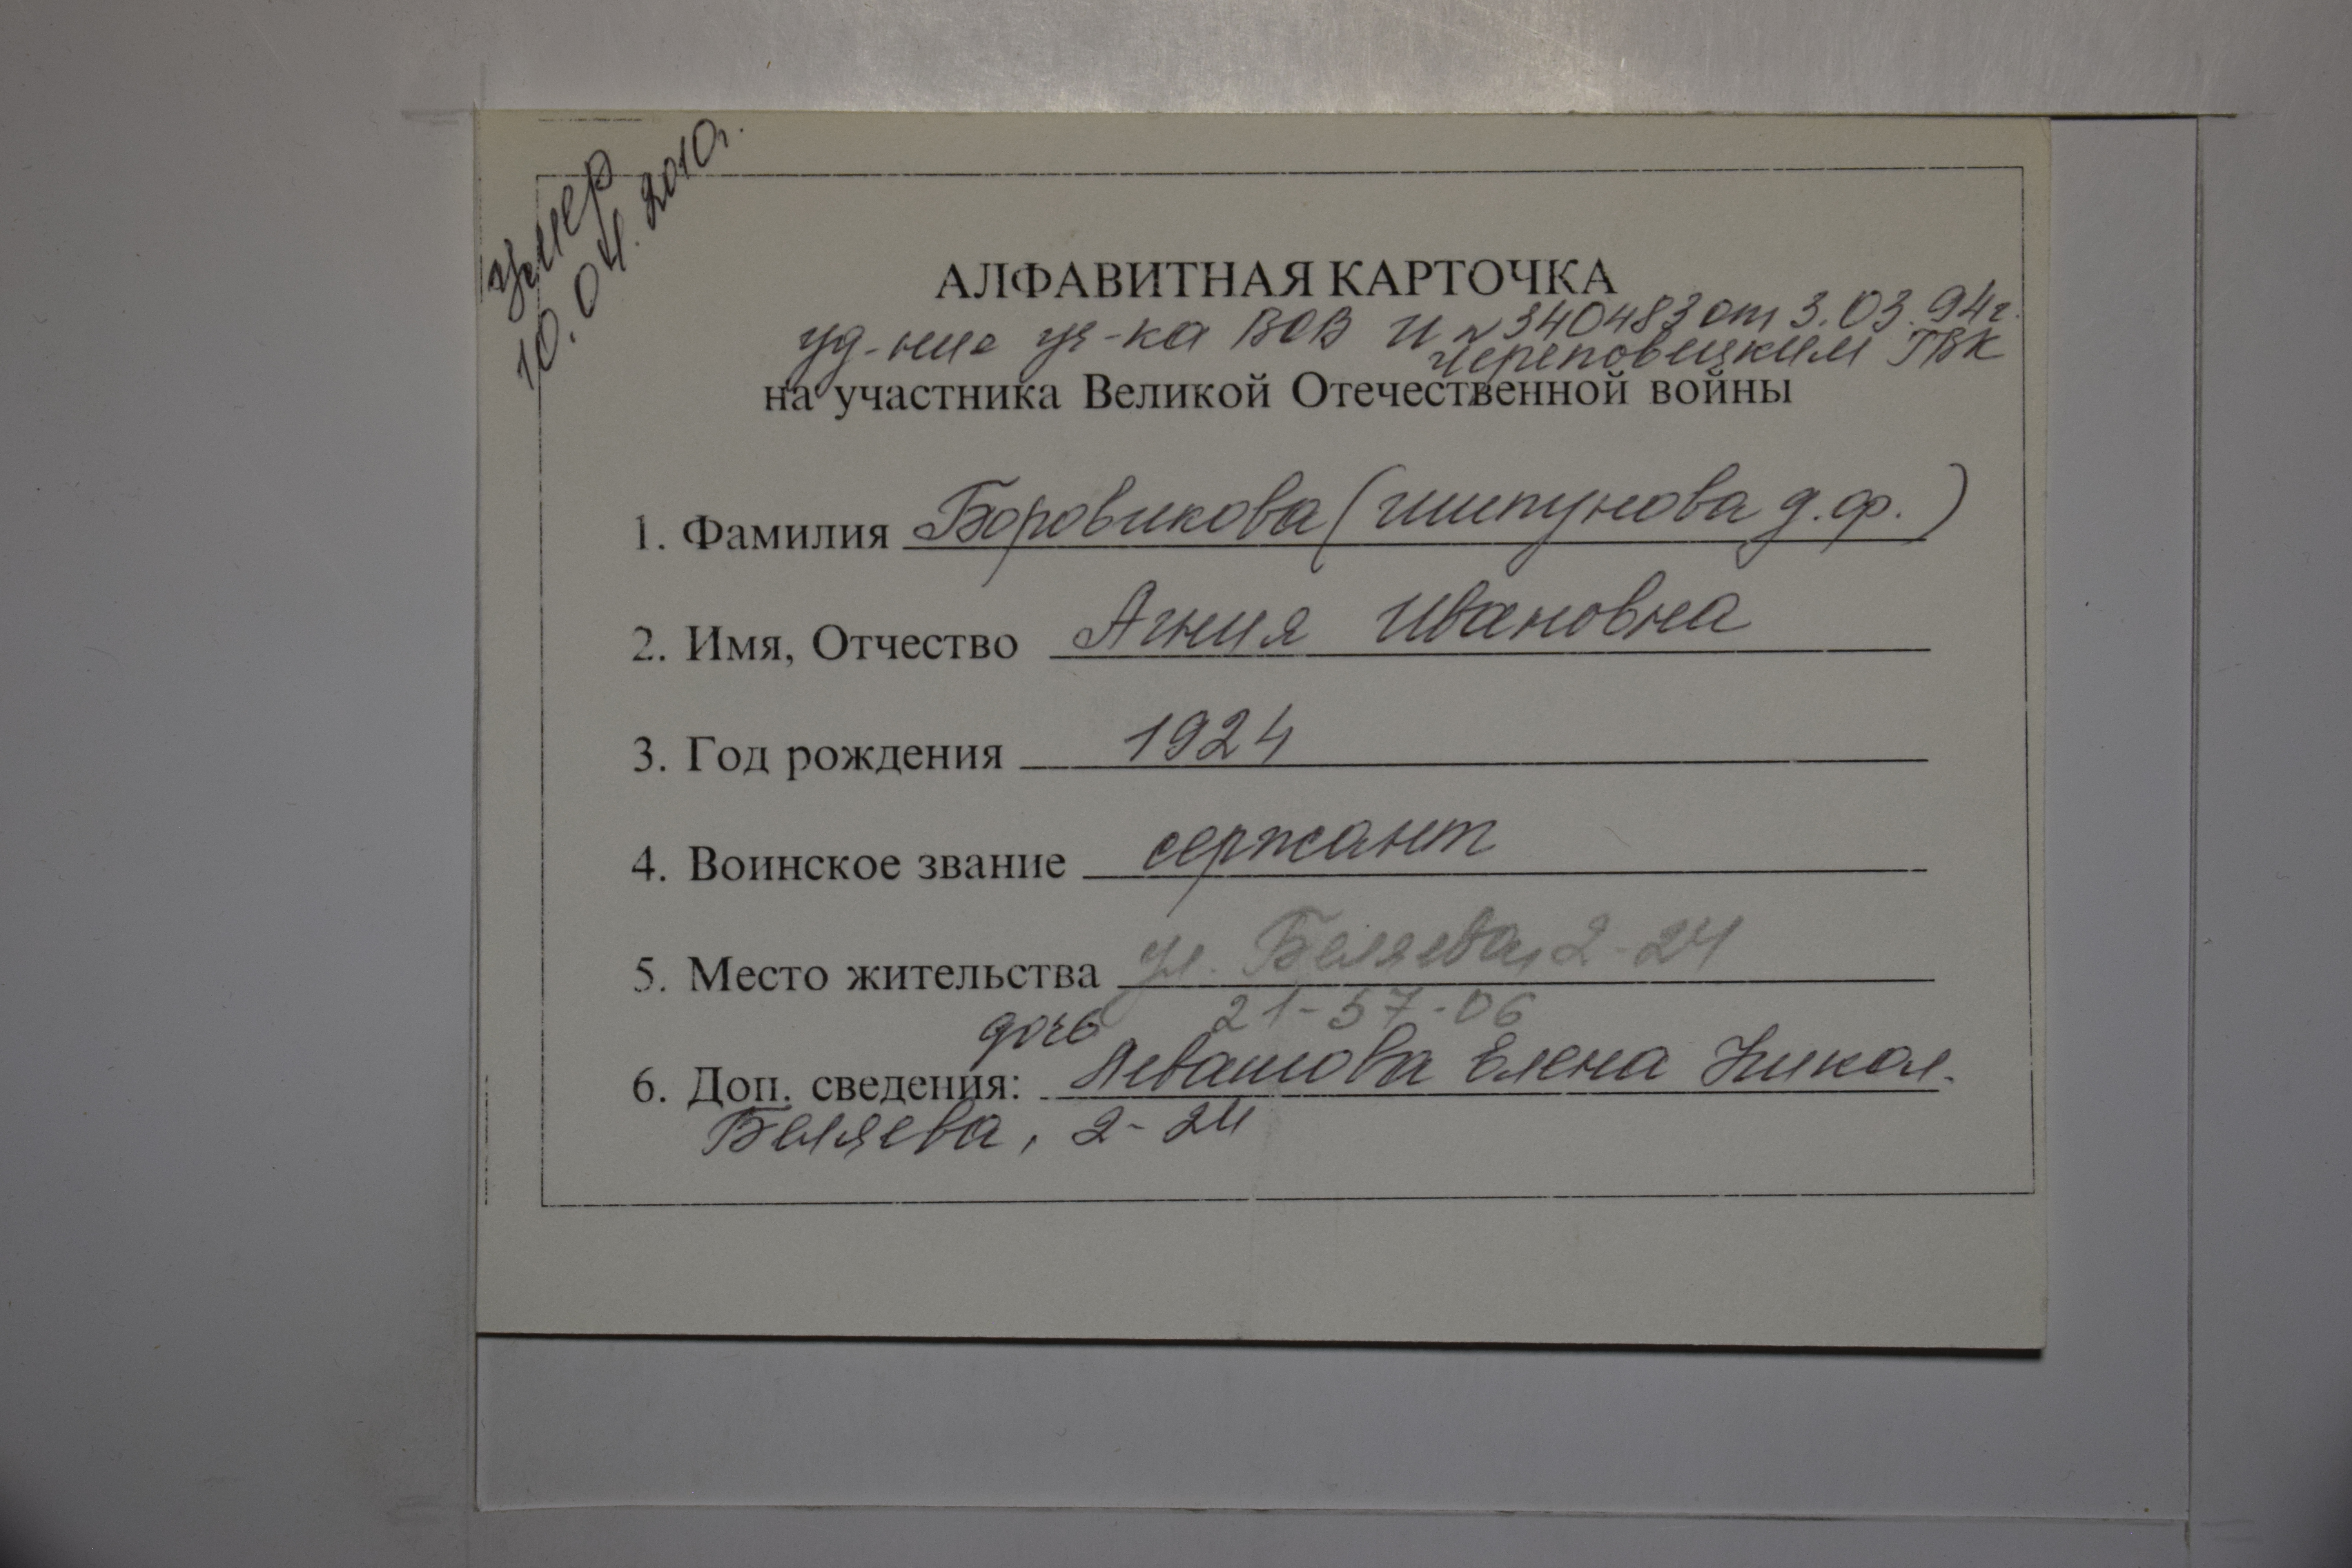 умер
10.04.2010г.
АЛФАВИТНАЯ КАРТОЧКА
уд-ние уч-ка ВОВ И №340483 от 3.03.94г.
Череповецким ГВК
на участника Великой Отечественной войны
1. Фамилия Боровикова (Шипунова д.ф.)
2. Имя, Отчество Агния Ивановна
3. Год рождения 1924
4. Воинское звание сержант
5. Место жительства ул. Беляева, 2-24
21-57-06
дочь
6. Доп. сведения: Левашова Елена Никол.
Беляева, 2-24